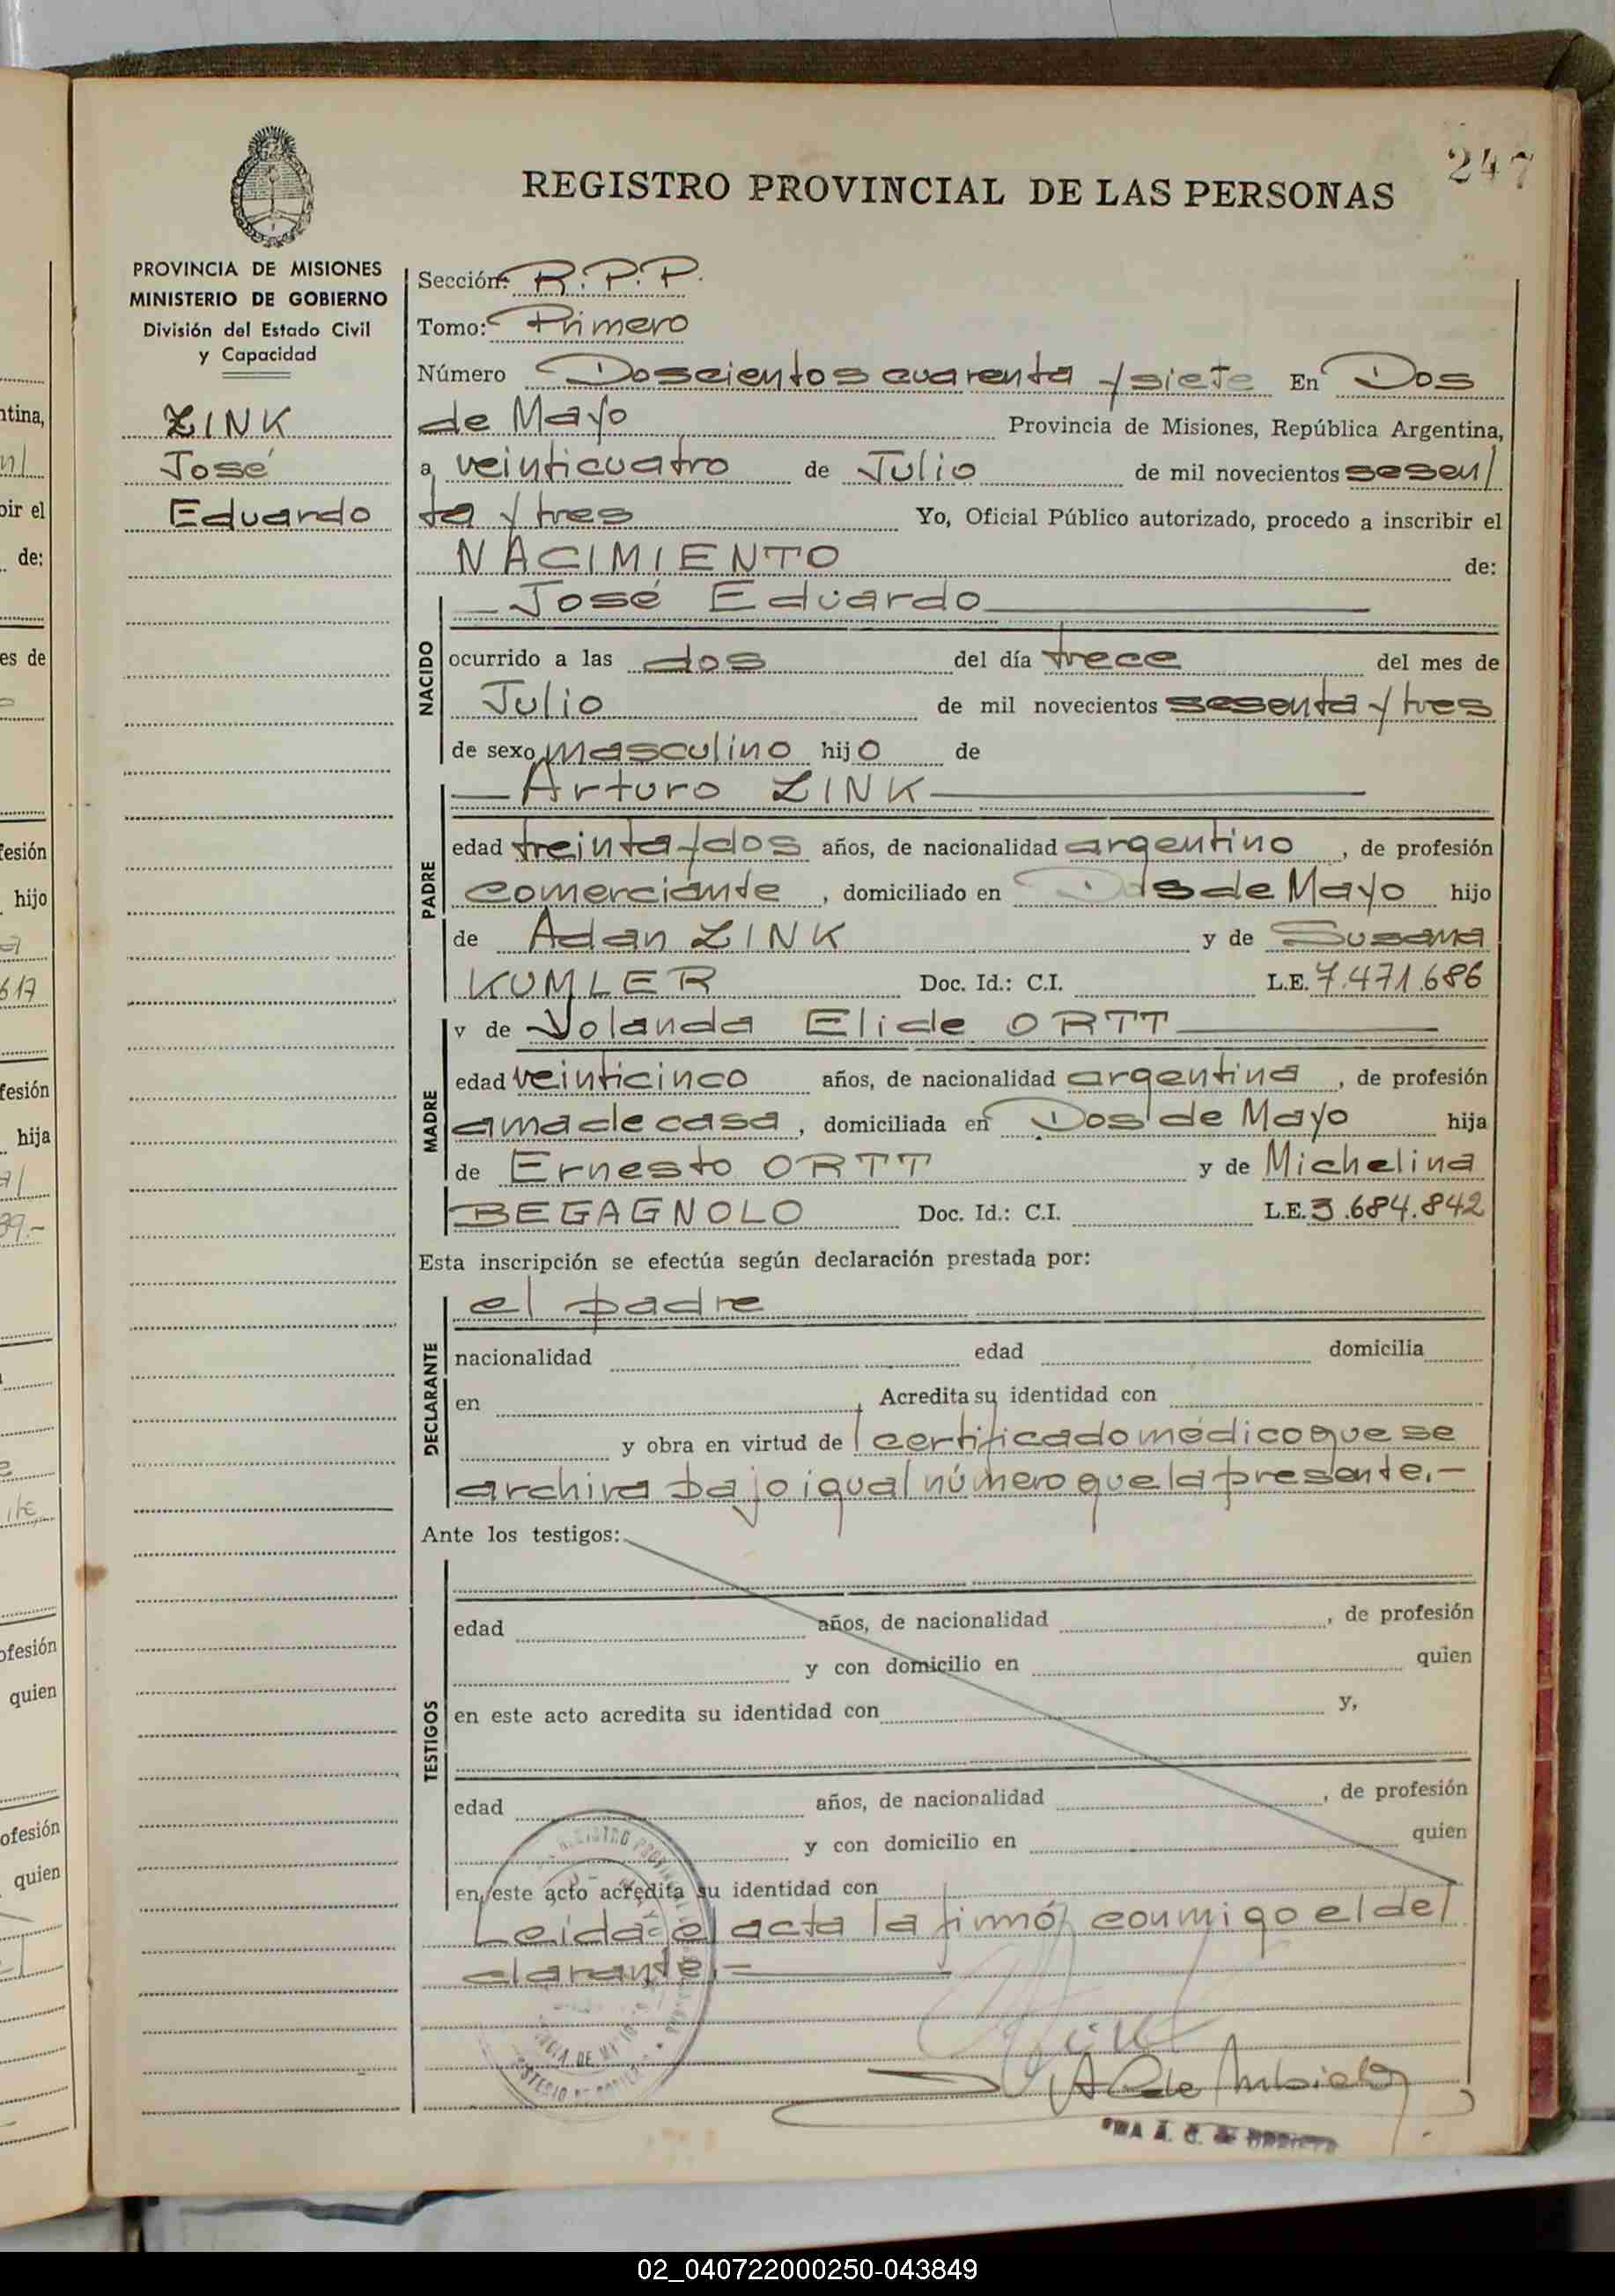 247
REGISTRO PROVINCIAL DE LAS PERSONAS
PROVINCIA DE MISIONES
MINISTERIO DE GOBIERNO
División del Estado Civil
y Capacidad
ZINK
José
Eduardo
Sección: R.P.P.
Tomo: Primero
Número Doscientos cuarenta y siete En Dos
de Mayo Provincia de Misiones, República Argentina,
a veinticuatro de Julio de mil novecientos sesen/
ta y tres Yo, Oficial Público autorizado, procedo a inscribir el
NACIMIENTO de:
NACIDO
José Eduardo
ocurrido a las dos del día trece del mes de
Julio de mil novecientos sesenta y tres
de sexo masculino hijo de
PADRE
Arturo ZINK
edad treinta y dos años, de nacionalidad argentino, de profesión
comerciante, domiciliado en Dos de Mayo hijo
de Adan ZINK y de Susana
KUMLER Doc. Id.: C.I. L.E. 7.471.686
MADRE
y de Yolanda Elide ORTT
edad veinticinco años, de nacionalidad argentina, de profesión
ama de casa, domiciliada en Dos de Mayo hija
de Ernesto ORTT y de Michelina
BEGAGNOLO Doc. Id.: C.I. L.E. 3.684.842
Esta inscripción se efectúa según declaración prestada por:
DECLARANTE
el padre
nacionalidad edad domicilia
en Acredita su identidad con
y obra en virtud de certificado médico que se
archiva bajo igual número que la presente.-
Ante los testigos:
TESTIGOS
edad años, de nacionalidad , de profesión
y con domicilio en quien
en este acto acredita su identidad con y,
edad años, de nacionalidad , de profesión
y con domicilio en quien
en este acto acredita su identidad con
Leída el acta la firmó, conmigo el de/
clarante.-
02_040722000250-043849